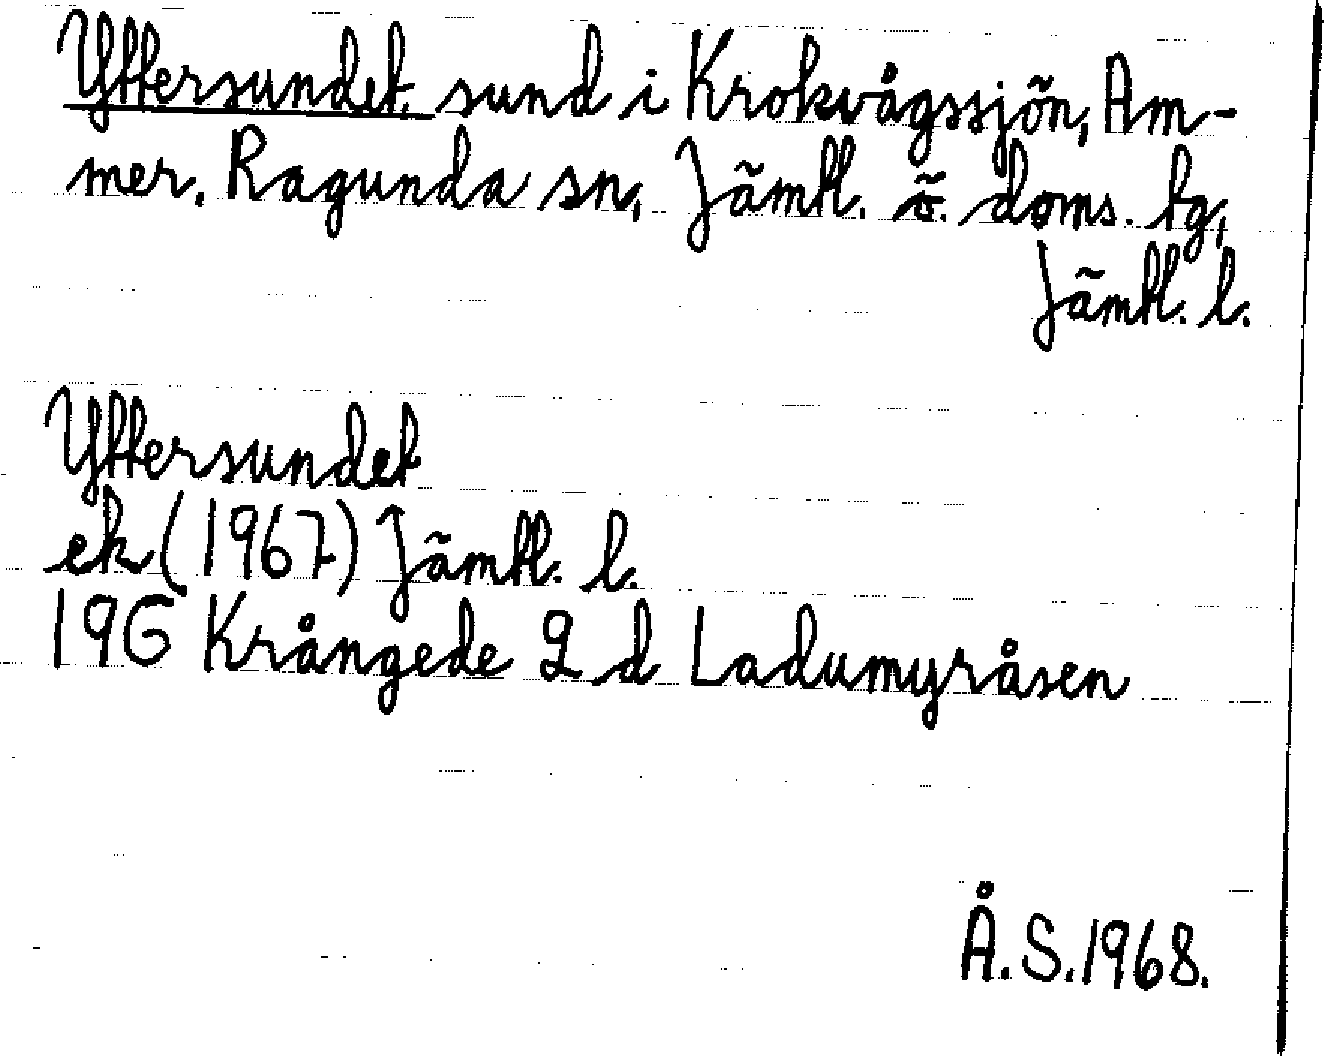 Yttersundet, sund i Krokvågssjön, Am-
mer, Ragunda sn, Jämtl. ö. doms. tg,
Jämtl. l.
Yttersundet
ek (1967) Jämtl. l.
19G Krångede 2 d Ladumyråsen
Å.S.1968.